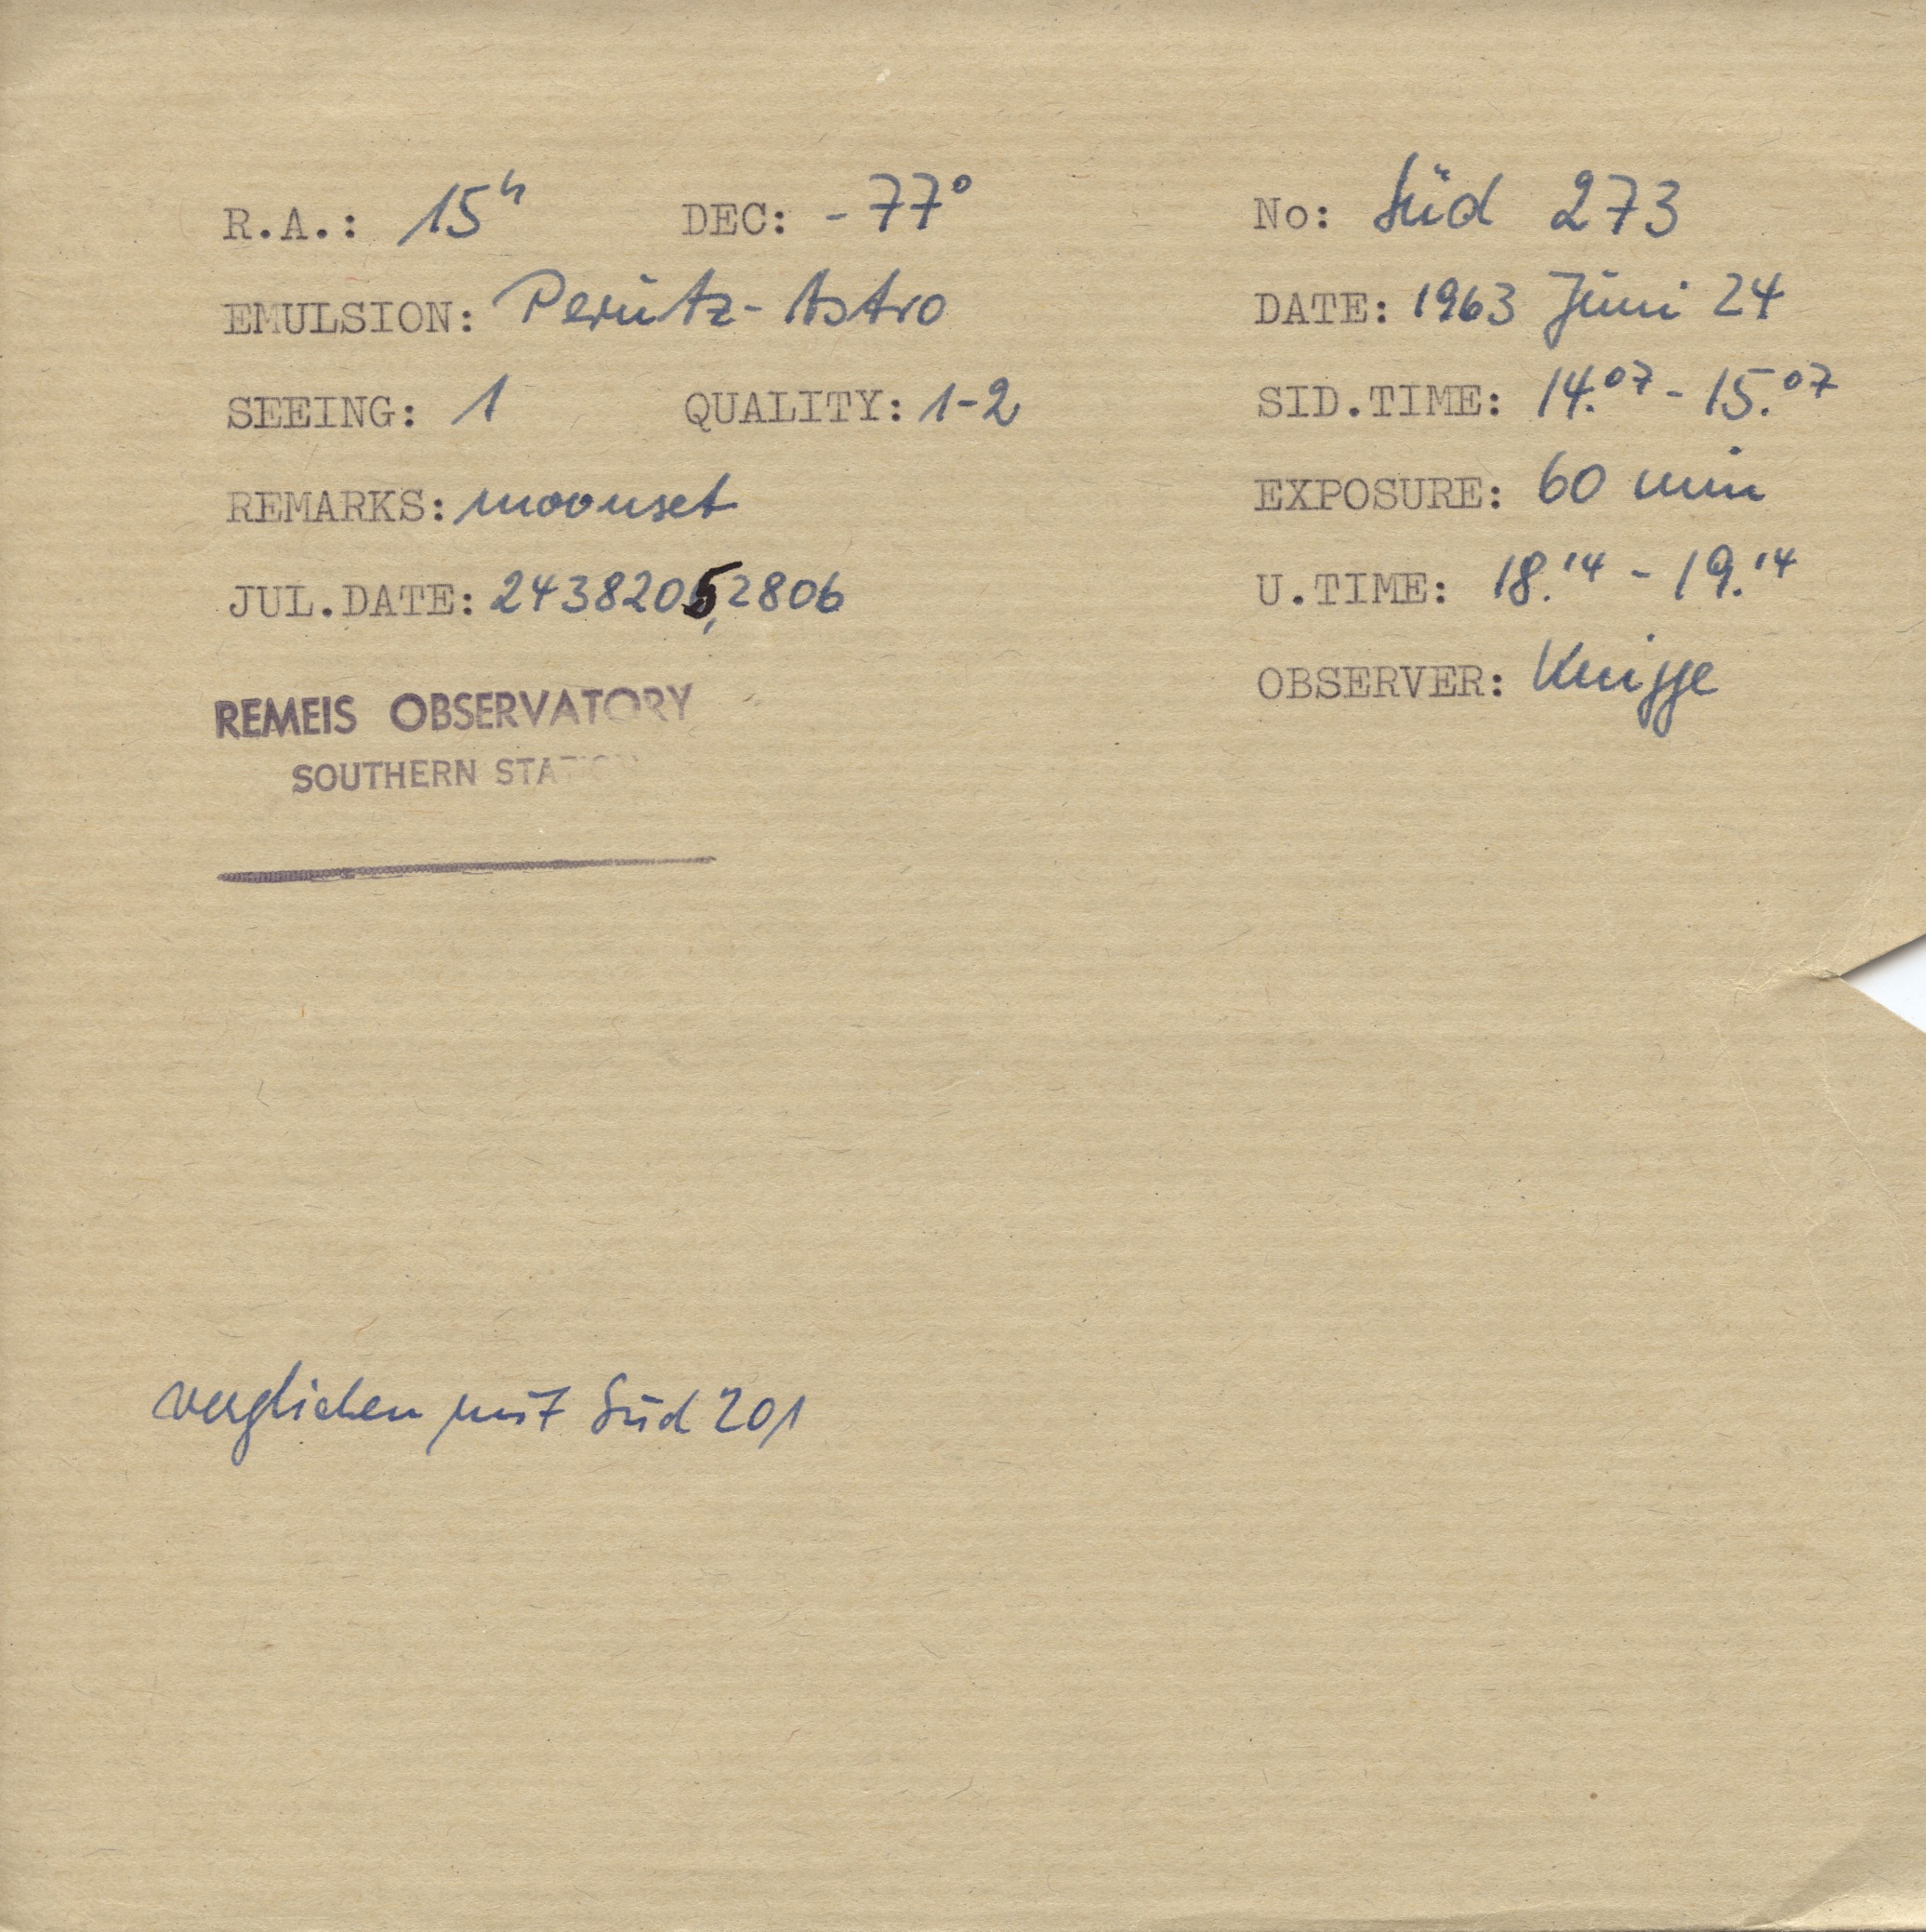 R.A.: 15h DEC: -77° No: Süd 273
EMULSION: Perutz-Astro DATE: 1963 Juni 24
SEEING: 1 QUALITY: 1-2 SID.TIME: 14.07 - 15.07
REMARKS: moonset EXPOSURE: 60 min
JUL.DATE: 2438205,2806 U.TIME: 18.14 - 19.14
OBSERVER: Knigge
REMEIS OBSERVATORY
SOUTHERN STATION
verglichen mit Süd 201